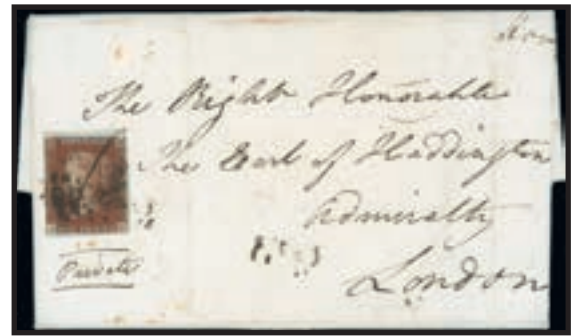 The Right Honorable
The Earl of Haddington
Admiralty
London
Private